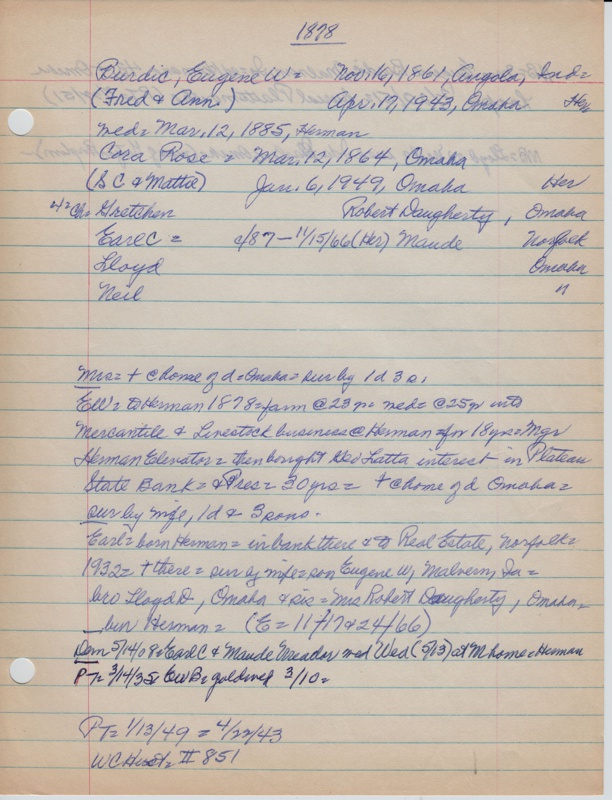 1878
Burdic, Eugene W = Nov. 16, 1861, Angola, Ind =
(Fred & Ann.) Apr. 17, 1943, Omaha Her
med = Mar. 12, 1885, Herman
Cora Rose = Mar. 12, 1864, Omaha
(S C & Mattie) Jan. 6, 1949, Omaha Her
4 = Ch = Gretchen Robert Daugherty, Omaha
Earl C = c/87 - 11/15/66 (Her) Maude Norfolk
Lloyd Omaha
Neil "
Mrs = + @ home of d = Omaha = sur by 1 d 3 s.
EW = to Herman 1878 = farm @ 23 yr = med = @ 25 yr into
Mercantile & Livestock business @ Herman = for 18 yrs = Mgr
Herman Elevator = then bought Latta interest in Plateau
State Bank = & Pres = 30 yrs = + @ home of d Omaha =
sur by wife, 1 d & 3 sons.
Earl = born Herman = in bank there & to Real Estate, Norfolk =
1932 = + there = sur by wife = son Eugene W, Malvern, Ia =
bro Lloyd D, Omaha & sis = Mrs Robert Daugherty, Omaha =
bur Herman = (E = 11/17 & 24/66)
Dem 5/14/08 = Earl C & Maude med Wed (5/13) at M home = Herman
PT = 3/14/35 = EWB = gold wed 3/10 =
PT = 1/13/49 = 4/22/43
WC Hist = II 851